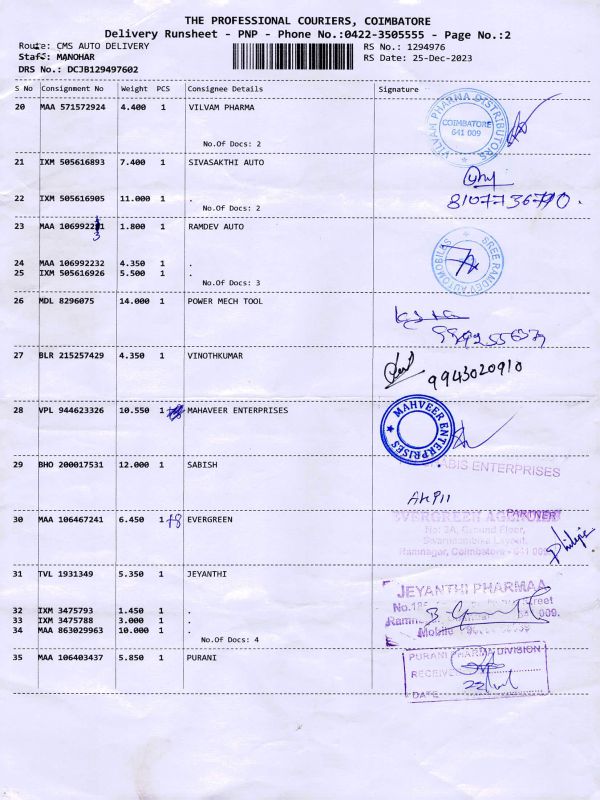 THE PROFESSIONAL COURIERS, COIMBATORE
Delivery Runsheet - PNP - Phone No.:0422-3505555 - Page No.:2
Route: CMS AUTO DELIVERY RS No.: 1294976
Staff: MANOHAR RS Date: 25-Dec-2023
DRS No.: DCJB129497602
S No Consignment No Weight PCS Consignee Details Signature
20 MAA 571572924 4.400 1 VILVAM PHARMA
VILVAM PHARMA DISTRIBUTORS
COIMBATORE
641 009
No.Of Docs: 2
21 IXM 505616893 7.400 1 SIVASAKTHI AUTO
22 IXM 505616905 11.000 1 .
8107736710.
No.Of Docs: 2
23 MAA 10699221 1.800 1 RAMDEV AUTO
3
SREE RAMDEV AUTOMOBILES
24 MAA 106992232 4.350 1 .
25 IXM 505616926 5.500 1 .
No.Of Docs: 3
26 MDL 8296075 14.000 1 POWER MECH TOOL
27 BLR 215257429 4.350 1 VINOTHKUMAR
9943020910
28 VPL 944623326 10.550 1 MAHAVEER ENTERPRISES
MAHVEER ENTERPRISES
29 BHO 200017531 12.000 1 SABISH
ABIS ENTERPRISES
PARTNER
30 MAA 106467241 6.450 1 +8 EVERGREEN
EVERGREEN AGENCIES
No: 2A, Ground Floor,
Layout,
Ramnagar, Coimbatore - 641 009
31 TVL 1931349 5.350 1 JEYANTHI
JEYANTHI PHARMAA
Street
009.
Mobile
32 IXM 3475793 1.450 1 .
33 IXM 3475788 3.000 1 .
34 MAA 863029963 10.000 1 .
No.Of Docs: 4
35 MAA 106403437 5.850 1 PURANI
PURANI PHARMA DIVISION
RECEIVED
DATE